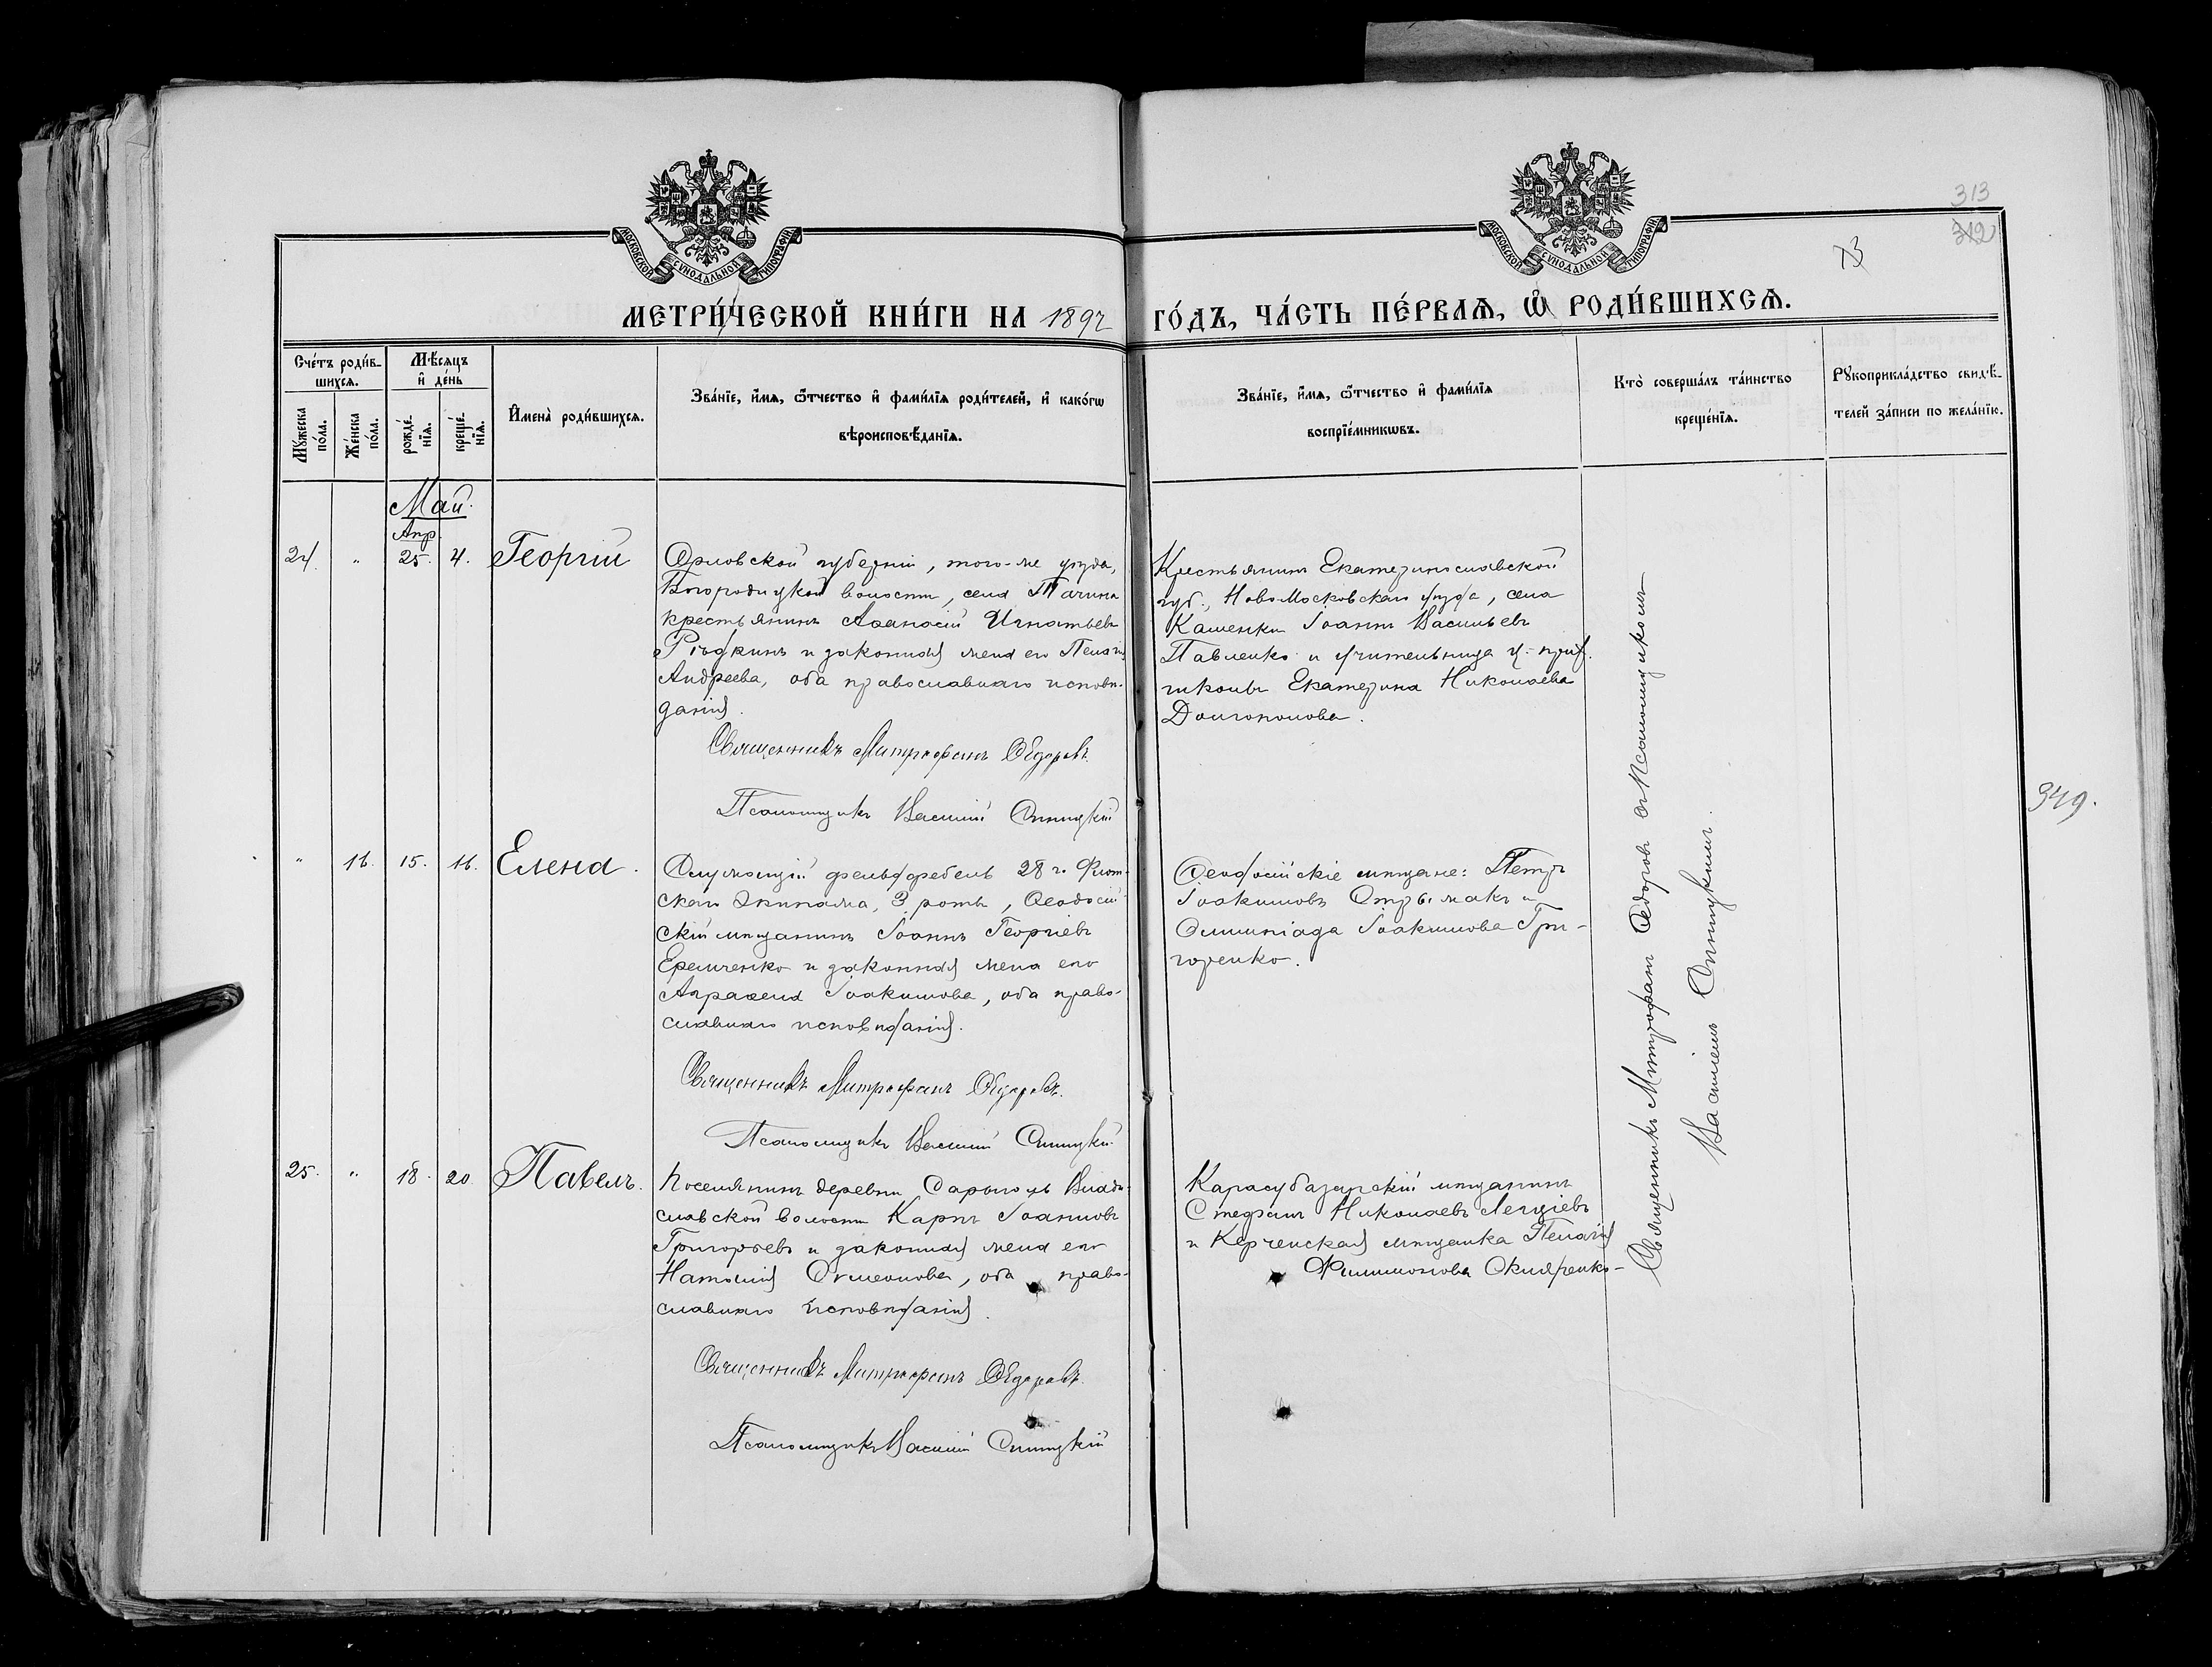 313
312
73
МОСКОВСКОЙ СѴНОДАЛЬНОЙ ТИПОГРАФІИ
МОСКОВСКОЙ СѴНОДАЛЬНОЙ ТИПОГРАФІИ
МЕТРИ́ЧЕСКОЙ КНИ́ГИ НА 1892 ГО́ДЪ, ЧА́СТЬ ПЕ́РВАѦ, Ѽ РОДИ́ВШИХСѦ.
Сче́тъ роди́в-
шихсѧ.
Мꙋ́жеска по́ла.
Же́нска по́ла.
Мѣ́сѧцъ
и҆ де́нь
рожде́-
нїѧ.
креще́-
нїѧ.
И҆мена̀ роди́вшихсѧ.
Зва́нїе, и҆́мѧ, ѻ҆́тчество и҆ фами́лїѧ роди́телей, и҆ како́гѡ
вѣроисповѣ́данїѧ.
Зва́нїе, и҆́мѧ, ѻ҆́тчество и҆ фами́лїѧ
воспрїе́мникѡвъ.
Кто̀ соверша́лъ та́инство
креще́нїѧ.
Рꙋкоприкла́дство свидѣ́-
телей за́писи по жела́нїю.
Май.
Апр.
24. " 25. 4. Георгій
Орловской губерніи, того-же уѣзда,
Богородицкой волости, села Тагина
крестьянинъ Аѳанасій Игнатьевъ
Рѣдкинъ и законная жена его Пелагія
Андреева, оба православнаго исповѣ-
данія.
Священникъ Митрофанъ Ѳедоровъ.
Псаломщикъ Василій Синицкій
Крестьянинъ Екатеринославской
губ., НовоМосковскаго уѣзда, села
Каменки Іоаннъ Васильевъ
Павленко и учительница ц.-прих.
школы Екатерина Николаева
Долгополова.
" 16. 15. 16. Елена.
Служащій фельдфебель 28 г. Флот-
скаго Экипажа, 3 роты, Ѳеодосій-
скій мѣщанинъ Іоаннъ Георгіевъ
Еремченко и законная жена его
Апраксия Іоакимова, оба право-
славнаго исповѣданія.
Священникъ Митрофанъ Ѳедоровъ.
Псаломщикъ Василій Синицкій.
Ѳеодосійскіе мѣщане: Петръ
Іоакимовъ Стрымакъ и
Олимпіада Іоакимова Гри-
горенко.
25. " 18. 20. Павелъ.
Поселянинъ деревни Сарыголь Влади-
славской волости Карпъ Іоанновъ
Григорьевъ и законная жена его
Наталия Симеонова, оба право-
славнаго исповѣданія.
Священникъ Митрофанъ Ѳедоровъ.
Псаломщикъ Василій Синицкій
Карасубазарскій мѣщанинъ
Стефанъ Николаевъ
и Керченская мѣщанка Пелагія
Филимонова Скляренко
Священникъ Митрофанъ Ѳедоровъ съ Псаломщикомъ
Василіемъ Синицкимъ.
349.